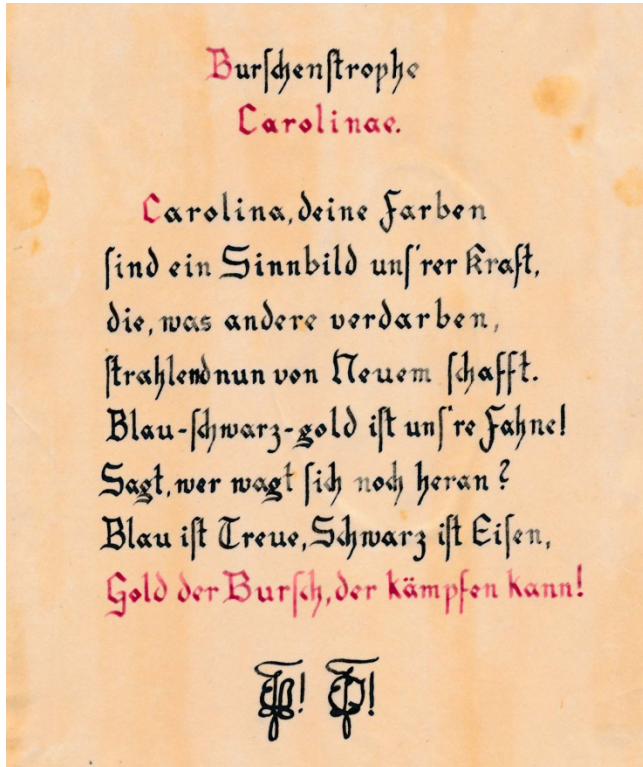 Burschenstrophe
Carolinae.
Carolina, deine Farben
sind ein Sinnbild uns'rer Kraft,
die, was andere verdarben,
strahlend nun von Neuem schafft.
Blau-schwarz-gold ist uns're Fahne!
Sagt, wer wagt sich noch heran?
Blau ist Treue, Schwarz ist Eisen,
Gold der Bursch, der kämpfen kann!